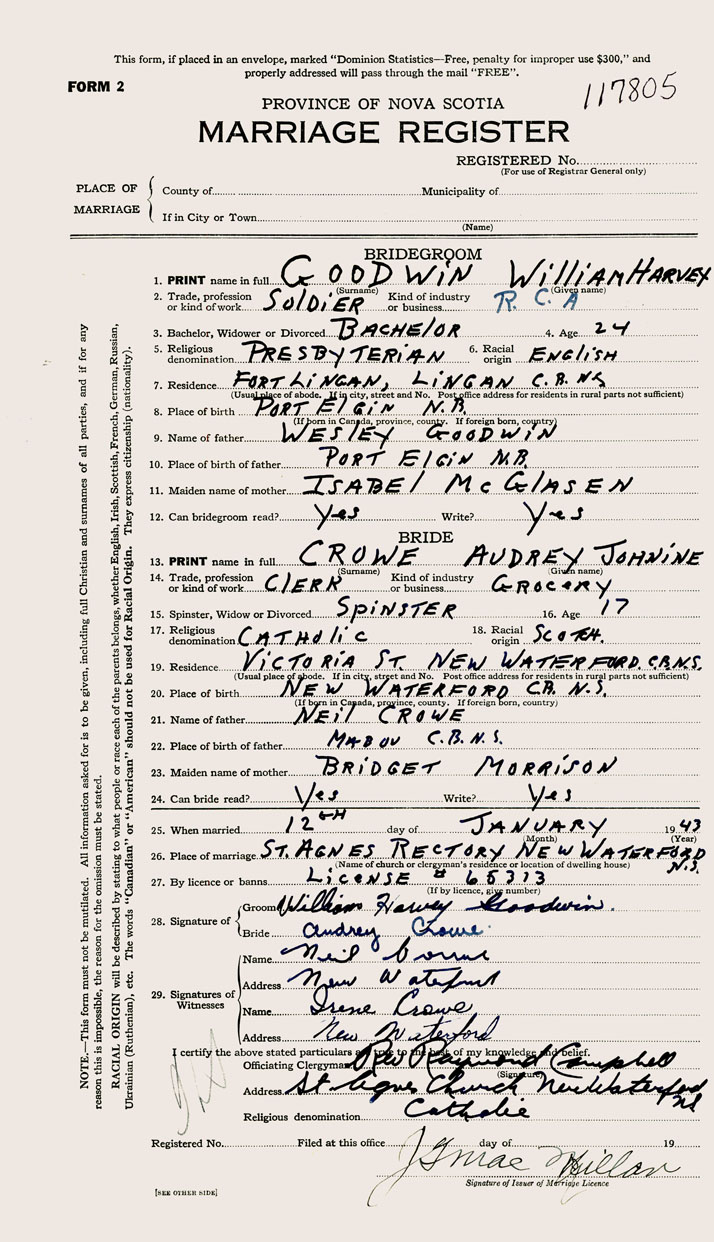 This form, if placed in an envelope, marked "Dominion Statistics—Free, penalty for improper use $300," and
properly addressed will pass through the mail "FREE".
FORM 2
117805
PROVINCE OF NOVA SCOTIA
MARRIAGE REGISTER
REGISTERED No.
(For use of Registrar General only)
PLACE OF MARRIAGE
County of Municipality of
If in City or Town
(Name)
BRIDEGROOM
1. PRINT name in full GOODWIN William HARVEY
(Surname) (Given name)
2. Trade, profession or kind of work SOLDIER Kind of industry or business R. C. A
3. Bachelor, Widower or Divorced BACHELOR 4. Age 24
5. Religious denomination PRESBYTERIAN 6. Racial origin ENGLISH
7. Residence FORT LINGAN, LINGAN C.B. NS
(Usual place of abode. If in city, street and No. Post office address for residents in rural parts not sufficient)
8. Place of birth PORT ElGIN N.B.
(If born in Canada, province, county. If foreign born, country)
9. Name of father WESLEY GOODWIN
10. Place of birth of father PORT ElGIN N.B.
11. Maiden name of mother ISABEL McGLASEN
12. Can bridegroom read? Yes Write? Yes
BRIDE
13. PRINT name in full CROWE AUDREY JOHNINE
(Surname) (Given name)
14. Trade, profession or kind of work ClERK Kind of industry or business GROCERY
15. Spinster, Widow or Divorced SPINSTER 16. Age 17
17. Religious denomination CATHOLIC 18. Racial origin SCOTH.
19. Residence VICTORIA ST. NEW WATERFORD. C.B.N.S.
(Usual place of abode. If in city, street and No. Post office address for residents in rural parts not sufficient)
20. Place of birth NEW WATERFORD C.B. N.S.
(If born in Canada, province, county. If foreign born, country)
21. Name of father NEIL CROWE
22. Place of birth of father MABOU C.B.N.S.
23. Maiden name of mother BRIDGET MORRISON
24. Can bride read? Yes Write? Yes
25. When married 12TH day of JANUARY 1943
(Month) (Year)
26. Place of marriage ST. AGNES RECTORY NEW WATERFORD N.S.
(Name of church or clergyman's residence or location of dwelling house)
27. By licence or banns LICENSE # 65313
(If by licence, give number)
28. Signature of
Groom William Harvey Goodwin.
Bride Audrey Crowe.
29. Signatures of Witnesses
Name Neil
Address New Waterford
Name Irene Crowe
Address New Waterford
I certify the above stated particulars are true to the best of my knowledge and belief.
Officiating Clergyman Rev Raymond Campbell
(Signature)
Address St. Agnes Church New Waterford NS
Religious denomination Catholic
Registered No. Filed at this office day of 19
J G MacMillan
Signature of Issuer of Marriage Licence
[SEE OTHER SIDE]
NOTE.—This form must not be mutilated. All information asked for is to be given, including full Christian and surnames of all parties, and if for any
reason this is impossible, the reason for the omission must be stated.
RACIAL ORIGIN will be described by stating to what people or race each of the parents belongs, whether English, Irish, Scottish, French, German, Russian,
Ukrainian (Ruthenian), etc. The words "Canadian" or "American" should not be used for Racial Origin. They express citizenship (nationality).